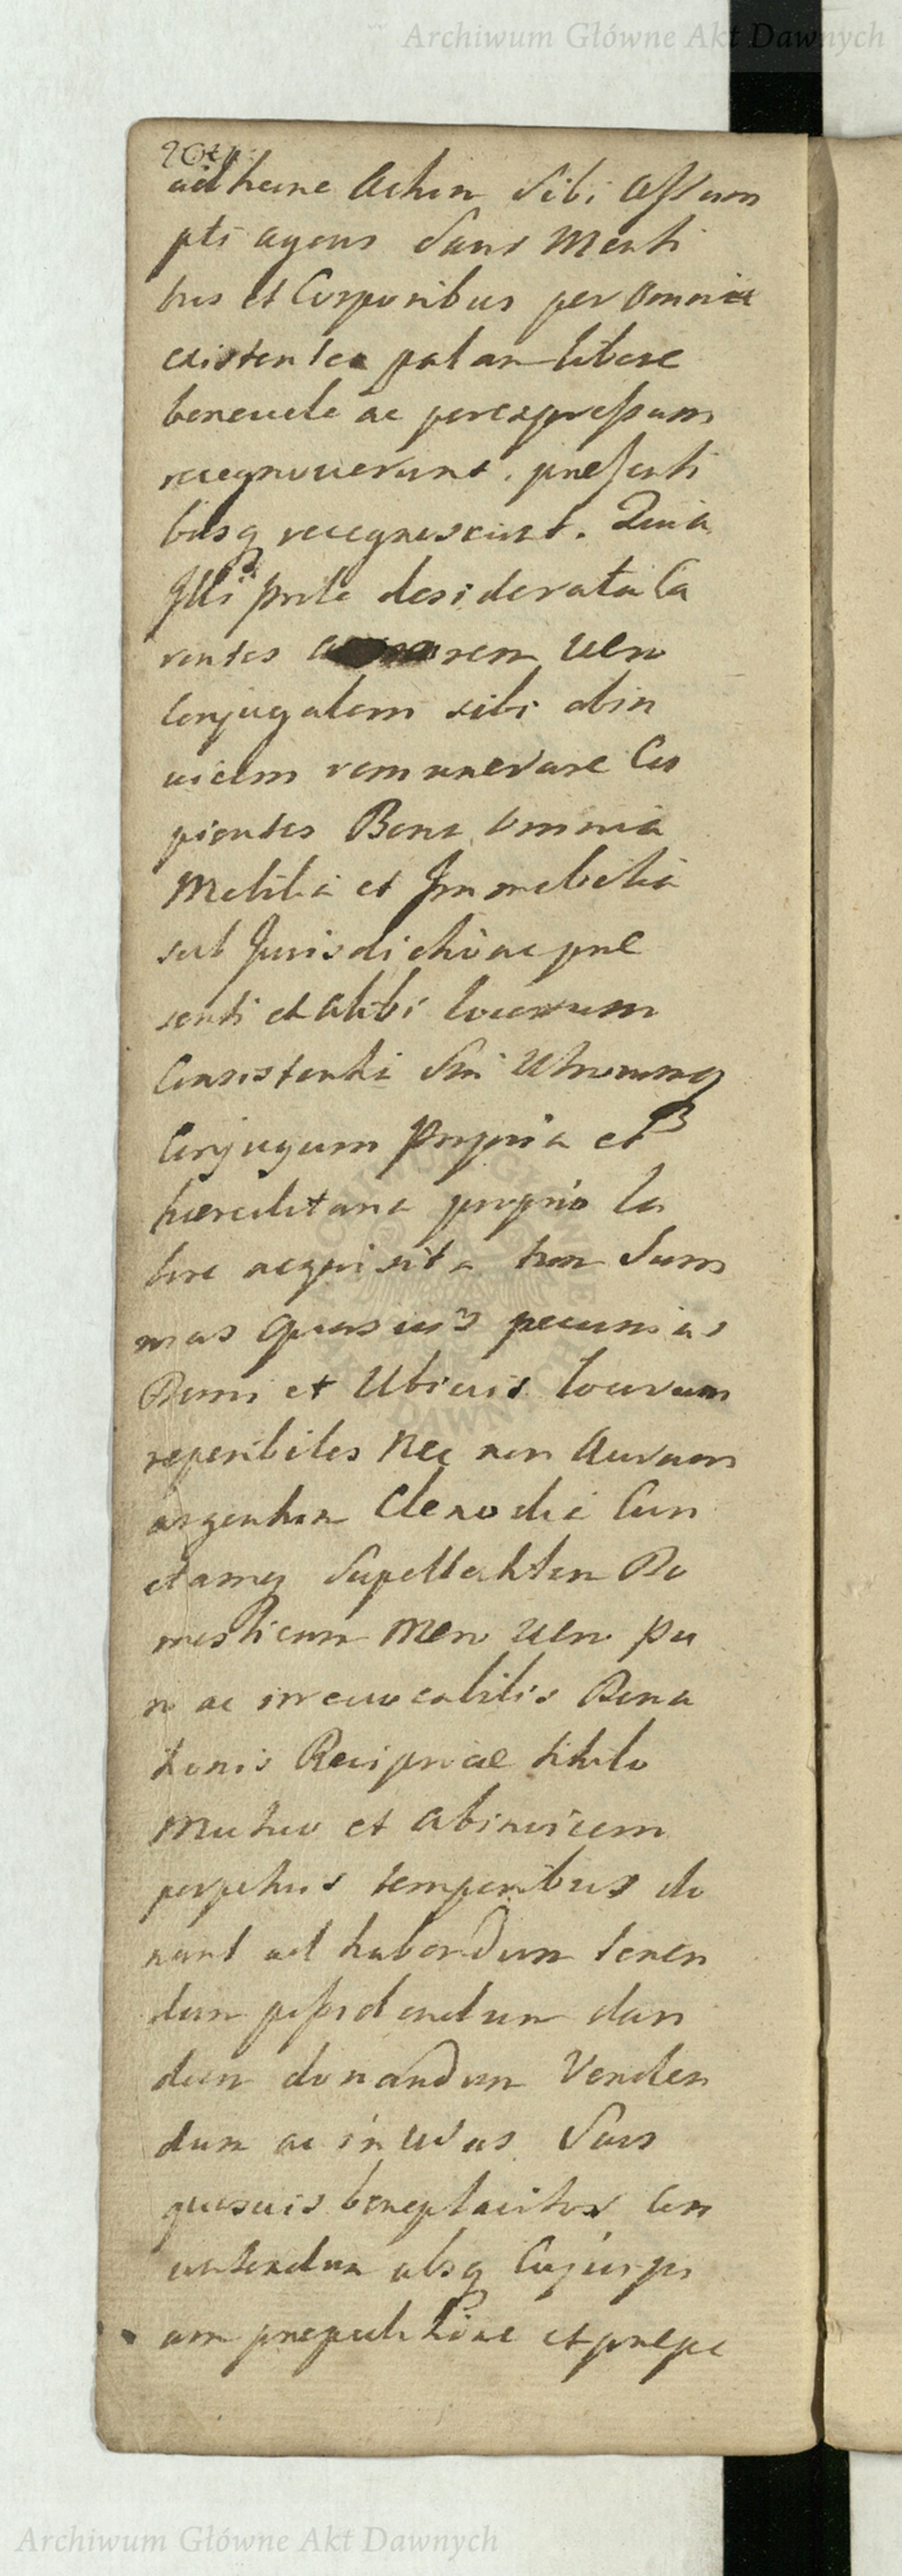 Archiwum Główne Akt Dawnych
ad hunc Actum sibi assum
pti agens Sanis Menti
bus et Corporibus per omnia
existentes palam libere
benevole ac per expressum
recognoverunt, presenti
busq recognoscunt. Quia
Illi prole desiderata Ca
rentes rem Vero
Conjugalem sibi abin
vicem remunerare Cu
pientes Bona omnia
Mobilia et Immobilia
sub Jurisdictione pre
senti et alibi locorum
Consistentia Sui Utrorumq
Conjugum Propria et
haereditaria proprio La
bore acquisita tum Sum
mas quasvis pecunias
Domi et Ubivis locorum
reperibiles nec non Aurum
argentum Clenodia Cun
ctamq Supellectilem Do
mesticam Mero Vero pu
ro ac irrevocabilis Dona
tionis Reciprocae titulo
Mutuo et abinvicem
perpetuis temporibus do
nant ad habendum tenen
dum possidendum dan
dum donandum Venden
dum ac in usus Suos
quosvis beneplacitos Con
vertendum absq Cujuspi
am propeditione et prope
Archiwum Główne Akt Dawnych